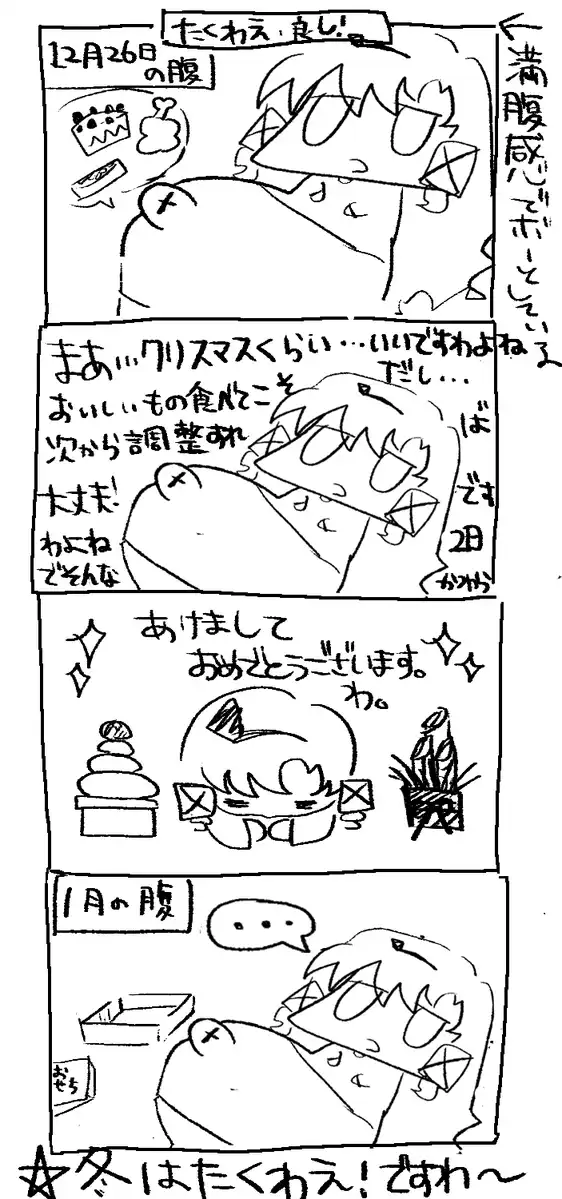 たくわえ良し!
12月26日
の腹
←満腹感でボーとしている
まぁ…クリスマスくらい…いいですわよね
だし…
おいしいもの食べてこそ
ば
次から調整すれ
大丈夫!
です
わよね
2日
でそんな
かそから
あけまして
おめでとうございます。
わ。
1月の腹
・・・
おせち
☆冬はたくわえ!ですわ〜